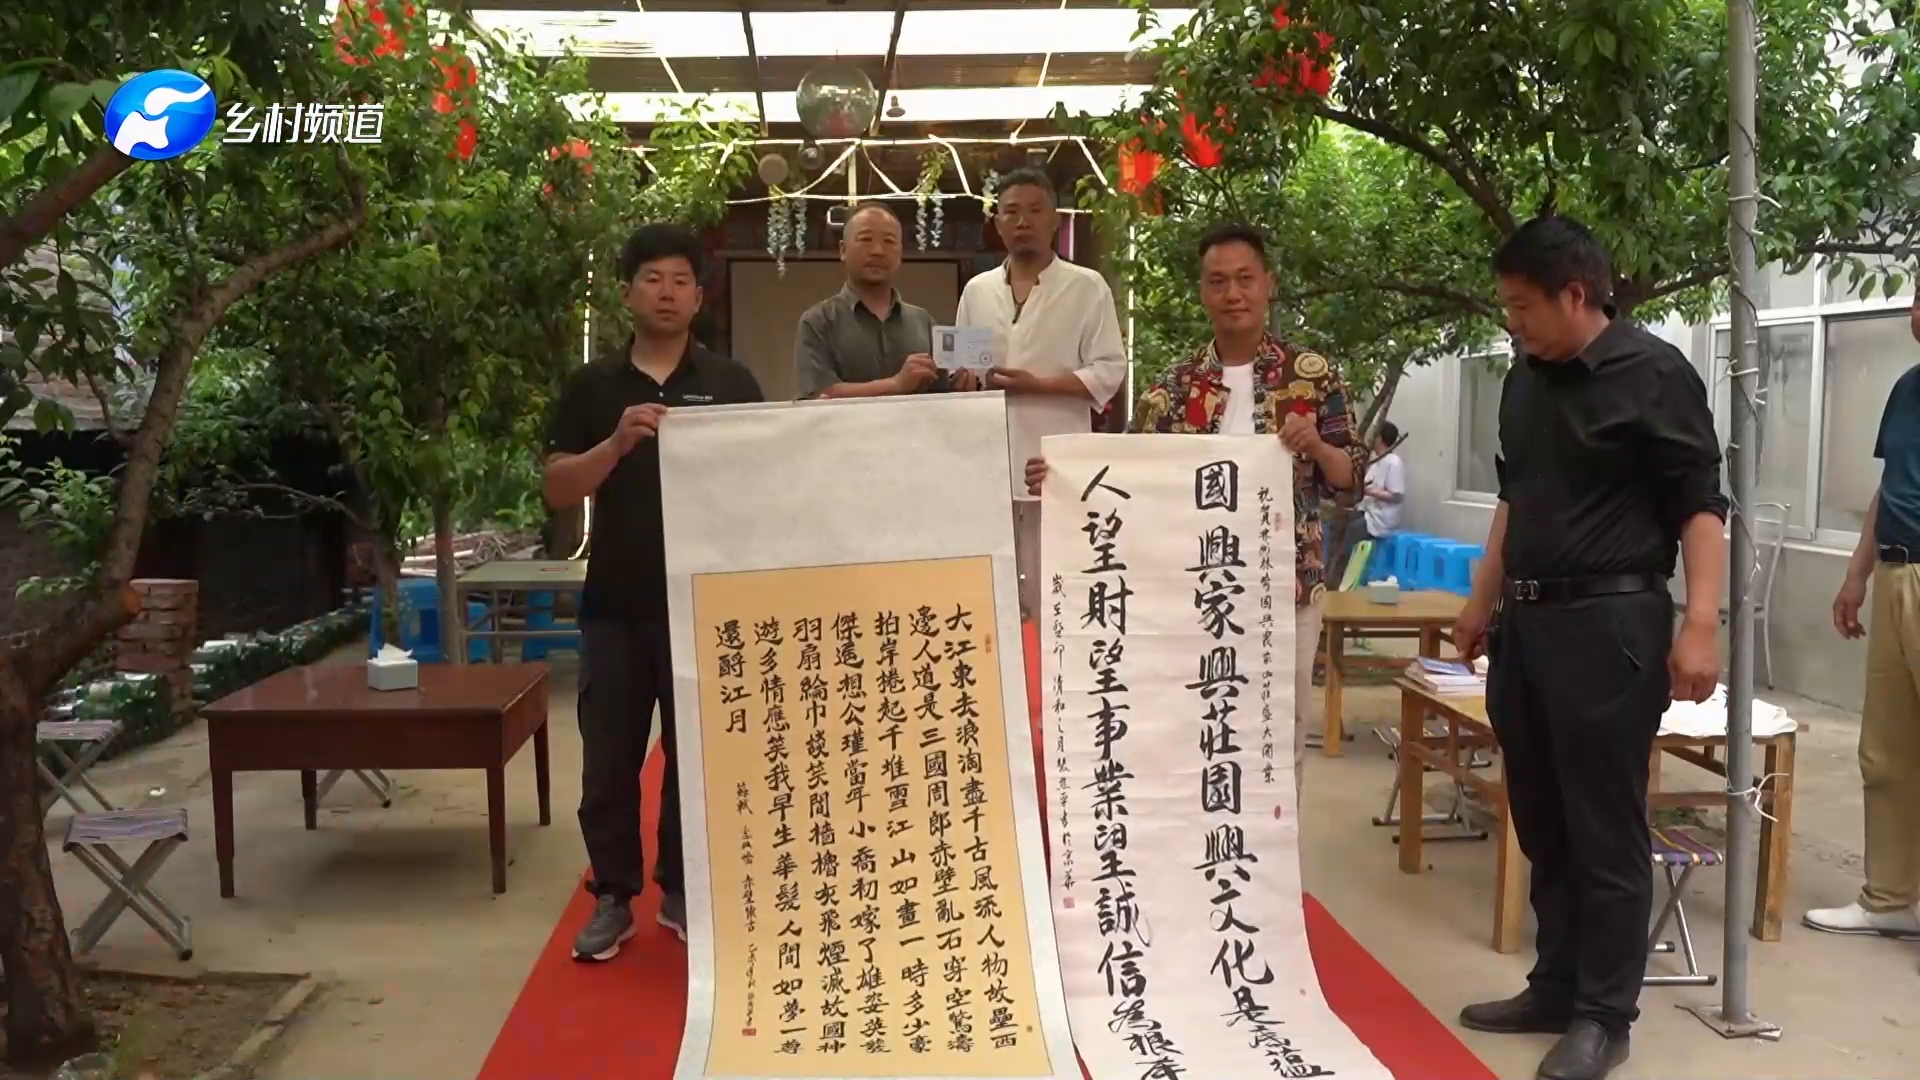 乡村频道
大江東去浪淘盡千古風流人物故壘西
邊人道是三國周郎赤壁亂石穿空驚濤
拍岸捲起千堆雪江山如畫一時多少豪
傑遙想公瑾當年小喬初嫁了雄姿英發
羽扇綸巾談笑間檣櫓灰飛煙滅故國神
遊多情應笑我早生華髮人間如夢一尊
還酹江月
蘇軾 念奴嬌 赤壁懷古
國興家興莊園興文化是底蘊
人望財望事業望誠信為根本